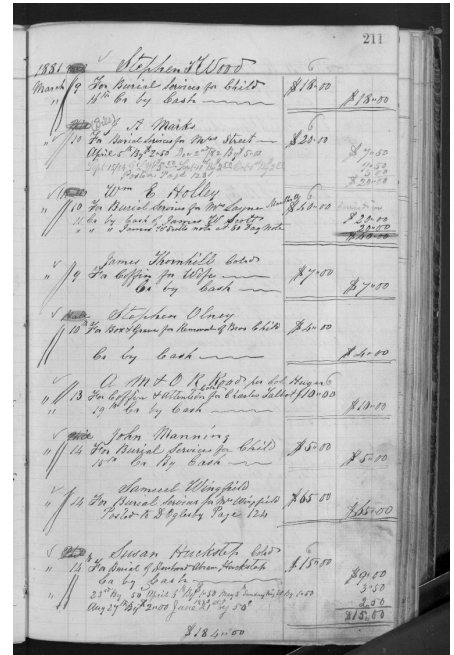 211
1881 Stephen T Wood
March 9 For Burial Services for Child $18.00
" 15th Cr by Cash $18.00
A Marks
" 10 For Burial Services for Mrs Street $20.00
April 5th By $2.50 $7.50
Posted Page 123 $20.00
Wm E Holley
" 10 For Burial Services for Mrs Layne $40.00
" 11 Cr by Cash of James W Scott $20.00
" " " James W Scotts note at 60 Day Note 20.00
$40.00
James Thornhill Cold
" 9 For Coffin for Wife $7.00
Cr by Cash $7.00
Stephen Olney
" 10th For Box & Grave for Removal of Bros Child $4.00
Cr by Cash $4.00
A M & O R Road per Col Huger
" 13 For Coffin & Attention for Charles Talbot $10.00
" 19th Cr by Cash $10.00
John Manning
" 14 For Burial Services for Child $5.00
" 15th Cr By Cash $5.00
Samuel Wingfield
" 14 For Burial Services for Mrs Wingfield $65.00
Posted to D Oglesby Page 124 $65.00
Susan Huckstep Cold
" 14 For Burial of Huckstep $15.00
Cr by Cash $9.00
" 23rd By 50 April 5th By $1.50 3.50
Aug 27th By $2.00 June 21 By 50c 2.50
$15.00
$184.00